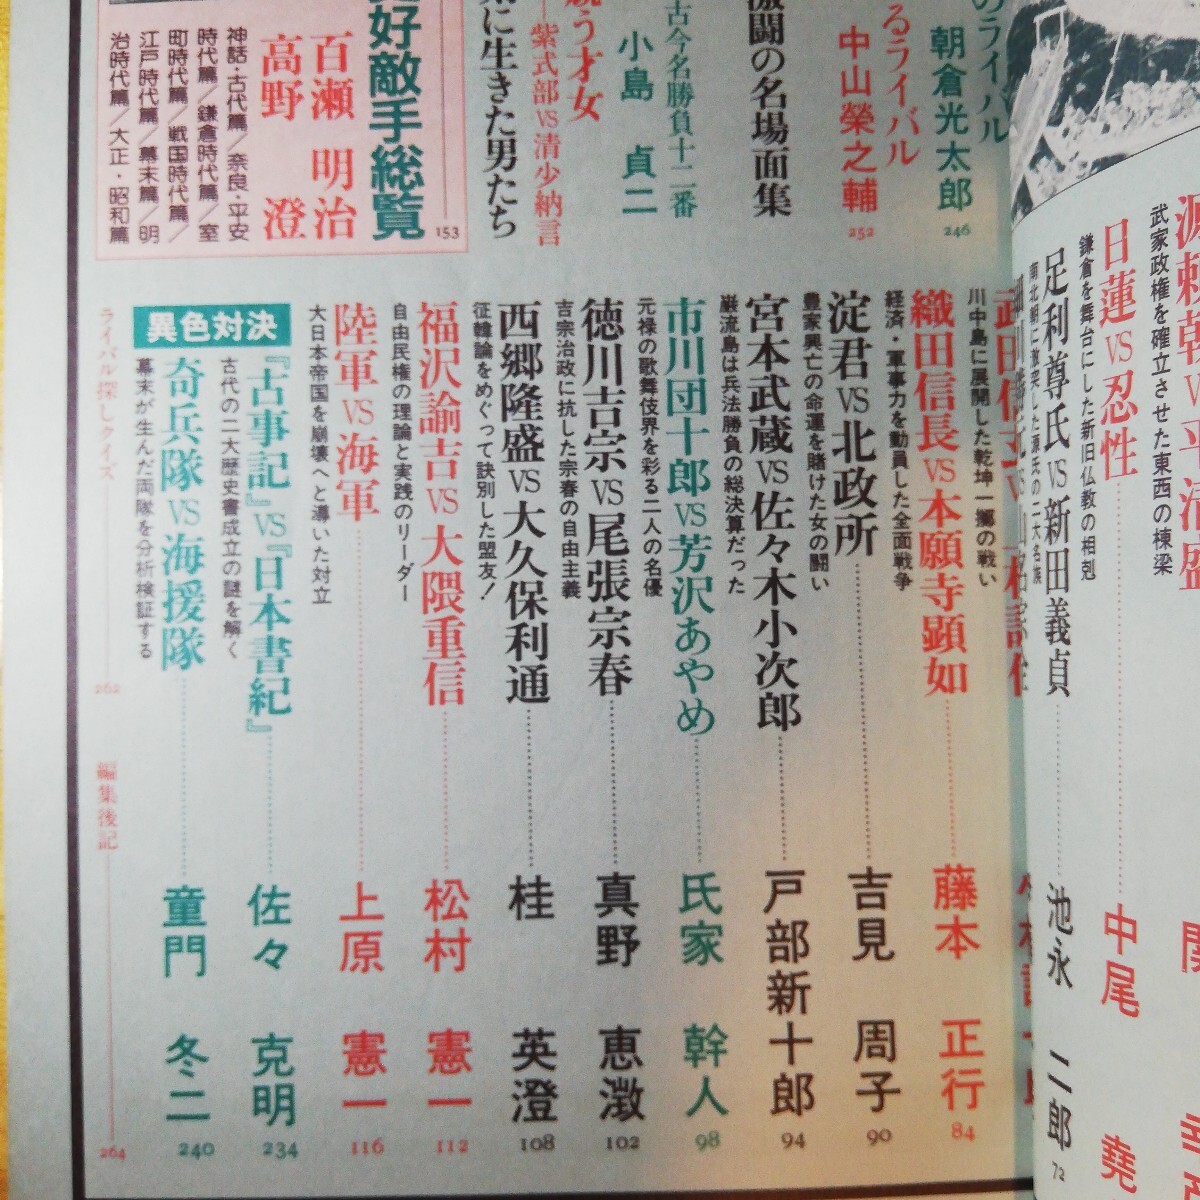 のライバル
朝倉光太郎
246
るライバル
中山榮之輔
252
激闘の名場面集
古今名勝負十二番
小島 貞二
競う才女
紫式部VS清少納言
に生きた男たち
好敵手総覧
153
百瀬 明治
高野 澄
神話・古代篇／奈良・平安
時代篇／鎌倉時代篇／室
町時代篇／戦国時代篇／
江戸時代篇／幕末篇／明
治時代篇／大正・昭和篇
源頼朝VS平清盛
武家政権を確立させた東西の棟梁
日蓮VS忍性
中尾 堯
鎌倉を舞台にした新旧仏教の相剋
足利尊氏VS新田義貞
池永 二郎
72
南北朝に激突した源氏の二大名族
川中島に展開した乾坤一擲の戦い
織田信長VS本願寺顕如
藤本 正行
84
経済・軍事力を動員した全面戦争
淀君VS北政所
吉見 周子
90
豊家興亡の命運を賭けた女の闘い
宮本武蔵VS佐々木小次郎
戸部新十郎
94
巌流島は兵法勝負の総決算だった
市川団十郎VS芳沢あやめ
氏家 幹人
98
元禄の歌舞伎界を彩る二人の名優
徳川吉宗VS尾張宗春
真野 恵澂
102
吉宗治政に抗した宗春の自由主義
西郷隆盛VS大久保利通
桂 英澄
108
征韓論をめぐって訣別した盟友！
福沢諭吉VS大隈重信
松村 憲一
112
自由民権の理論と実践のリーダー
陸軍VS海軍
上原 憲一
116
大日本帝国を崩壊へと導いた対立
異色対決
『古事記』VS『日本書紀』
佐々 克明
234
古代の二大歴史書成立の謎を解く
奇兵隊VS海援隊
童門 冬二
240
幕末が生んだ両隊を分析検証する
ライバル探しクイズ
262
編集後記
264